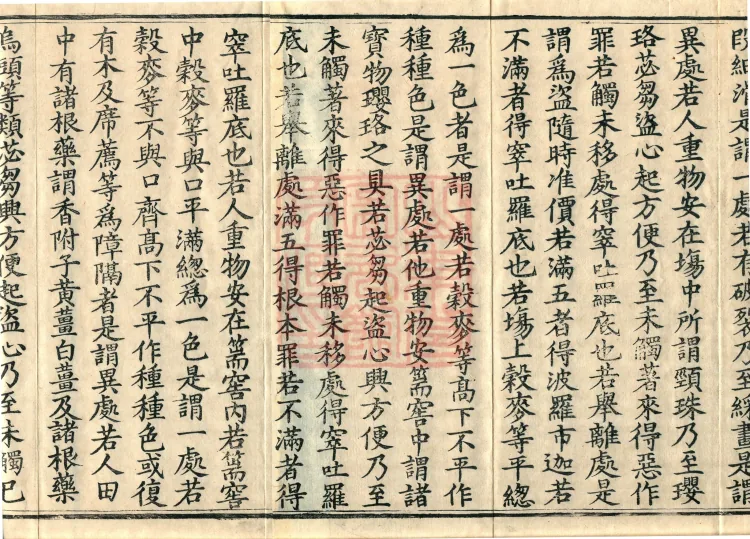 段細滑是謂一處若有破裂乃至綵畫是謂
異處若人重物安在塲中所謂頸珠乃至瓔
珞苾芻盜心起方便乃至未觸著來得惡作
罪若觸未移處得窣吐羅底也若舉離處是
謂爲盜隨時准價若滿五者得波羅市迦若
不滿者得窣吐羅底也若塲上穀麥等平緫
爲一色者是謂一處若穀麥等髙下不平作
種種色是謂異處若他重物安篅窖中謂諸
寶物瓔珞之具若苾芻起盜心興方便乃至
未觸著來得惡作罪若觸未移處得窣吐羅
底也若舉離處滿五得根本罪若不滿者得
窣吐羅底也若人重物安在篅窖內若篅窖
中穀麥等與口平滿緫爲一色是謂一處若
穀麥等不與口齊髙下不平作種種色或復
有木及席薦等爲障隔者是謂異處若人田
中有諸根藥謂香附子黃薑白薑及諸根藥
烏頭等類苾芻興方便起盜心乃至未觸已